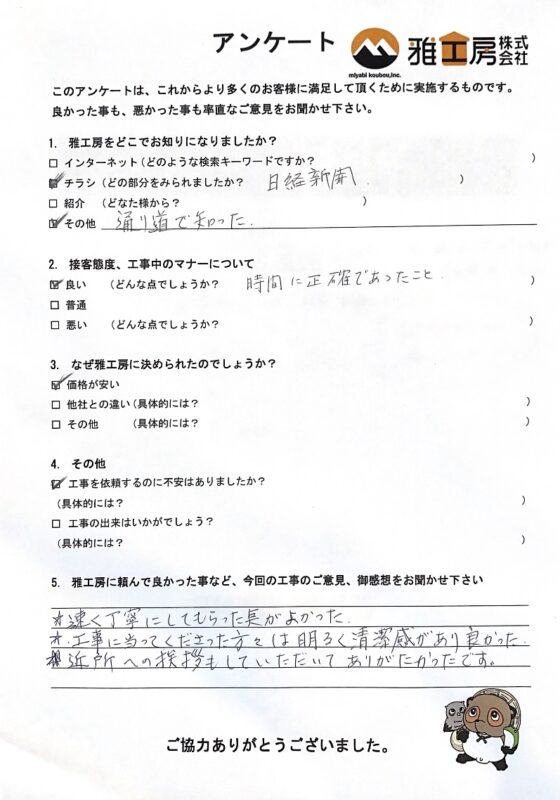 アンケート
雅工房株式会社
miyabi koubou,inc.
このアンケートは、これからより多くのお客様に満足して頂くために実施するものです。
良かった事も、悪かった事も率直なご意見をお聞かせ下さい。
1. 雅工房をどこでお知りになりましたか？
□ インターネット(どのような検索キーワードですか？ )
☑ チラシ (どの部分をみられましたか？ 日経新聞. )
□ 紹介 (どなた様から？ )
☑ その他 通り道で知った.
2. 接客態度、工事中のマナーについて
☑ 良い (どんな点でしょうか？ 時間に正確であったこと. )
□ 普通
□ 悪い (どんな点でしょうか？ )
3. なぜ雅工房に決められたのでしょうか？
☑ 価格が安い
□ 他社との違い(具体的には？ )
□ その他 (具体的には？ )
4. その他
☑ 工事を依頼するのに不安はありましたか？
(具体的には？ )
□ 工事の出来はいかがでしょう？
(具体的には？ )
5. 雅工房に頼んで良かった事など、今回の工事のご意見、御感想をお聞かせ下さい
* 速く丁寧にしてもらった がよかった.
*. 工事に当ってくださった方々は明るく清潔感があり良かった.
* 近所への挨拶もしていただいてありがたかったです。
ご協力ありがとうございました。